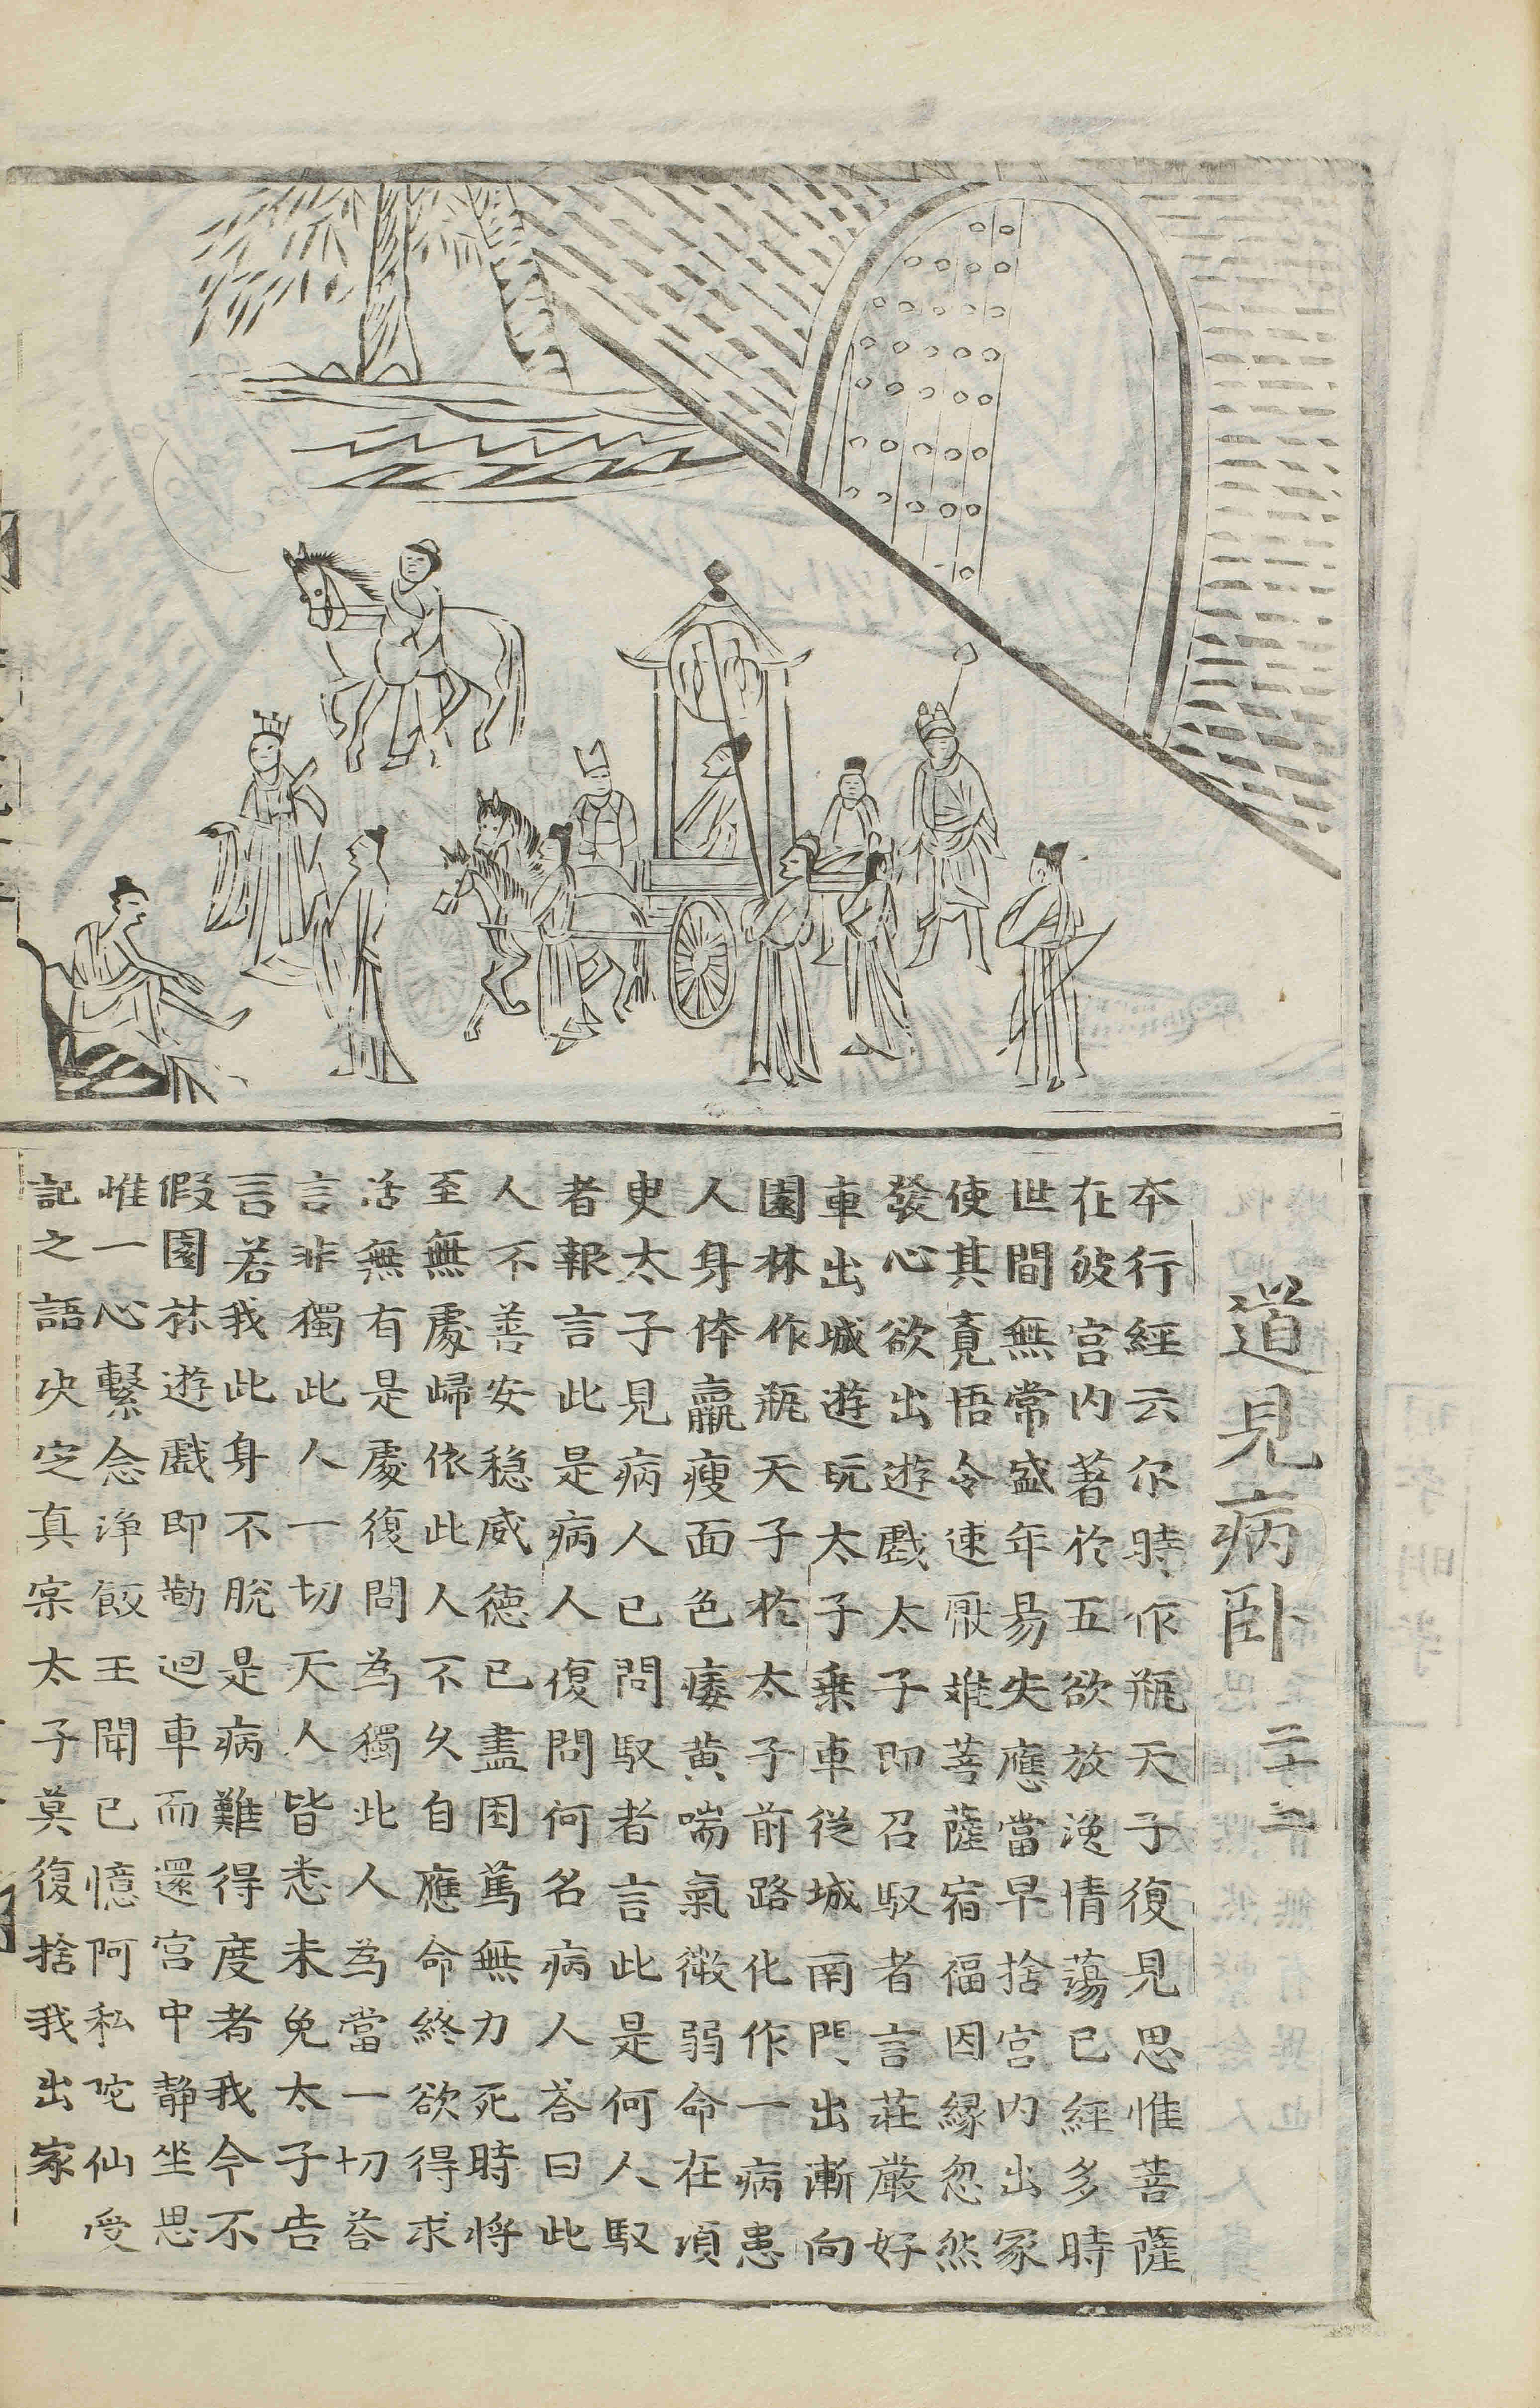 道見病卧 二十三
本行經云尔時作瓶天子復見思惟菩薩
在彼宫内著於五欲放逸情蕩已經多時
世間無常盛年易失應當早捨宫内出家
使其竟悟令速厭離菩薩宿福因緣忽然
發心欲出遊戲太子即召馭者言莊嚴好
車出城遊玩太子乗車從城南門出漸向
園林作瓶天子於太子前路化作一病患
人身体羸瘦面色痿黄喘氣微弱命在須
㬰太子見病人已問馭者言此是何人馭
者報言此是病人復問何名病人荅曰此
人不善安穏威德已盡困萬無力死時將
至無處歸依此人不久自應命終欲得求
活無有是處復問為獨此人為當一切荅
言非獨此人一切天人皆悉未免太子告
言若我此身不脫是病難得度者我今不
假園林遊戲即勑迴車而還宫中静坐思
惟一心繫念浄飯王聞已憶阿私陀仙受
記之語决定真实太子莫復捨我出家